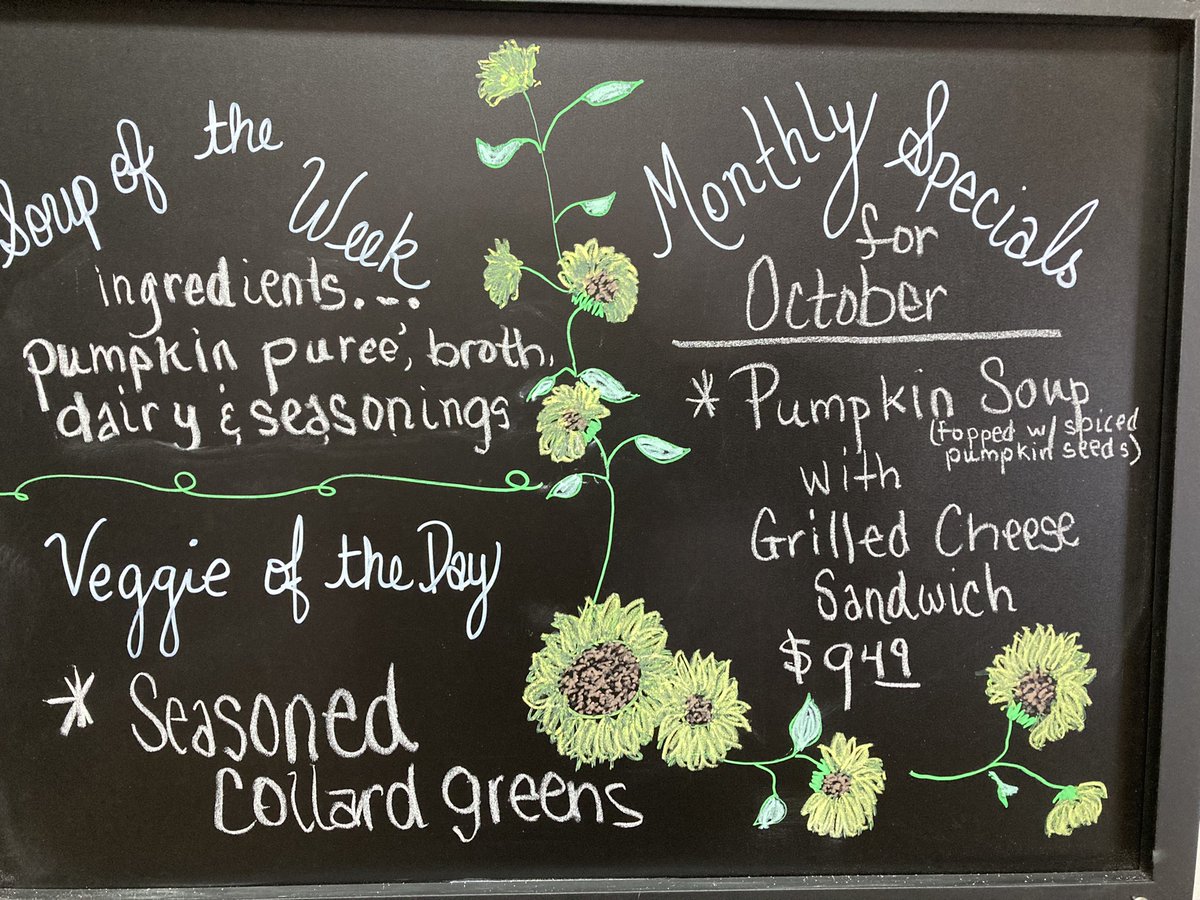 Soup of the Week
ingredients...
pumpkin pureé, broth,
dairy & seasonings
Veggie of the Day
* Seasoned
Collard greens
Monthly Specials
for
October
* Pumpkin Soup
(topped w/ spiced
pumpkin seeds)
with
Grilled Cheese
Sandwich
$9.49